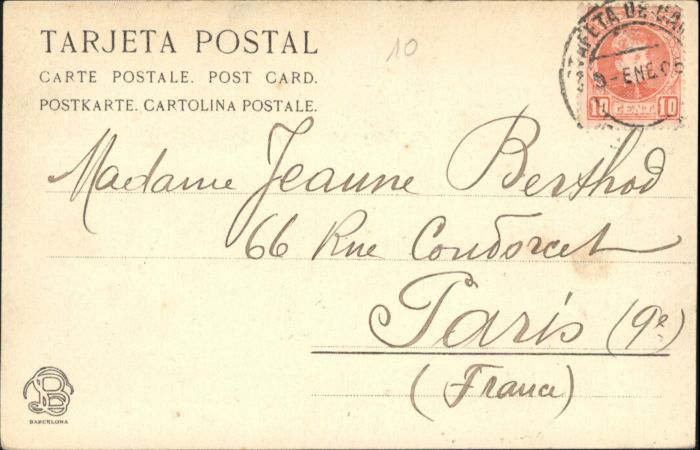 TARJETA POSTAL
CARTE POSTALE. POST CARD.
POSTKARTE. CARTOLINA POSTALE.
10
ESTAFETA DE
9-ENE.05
10 CENTS 10
Madame Jeanne Berthod
66 Rue Condorcet
Paris (9e)
(France)
BARCELONA